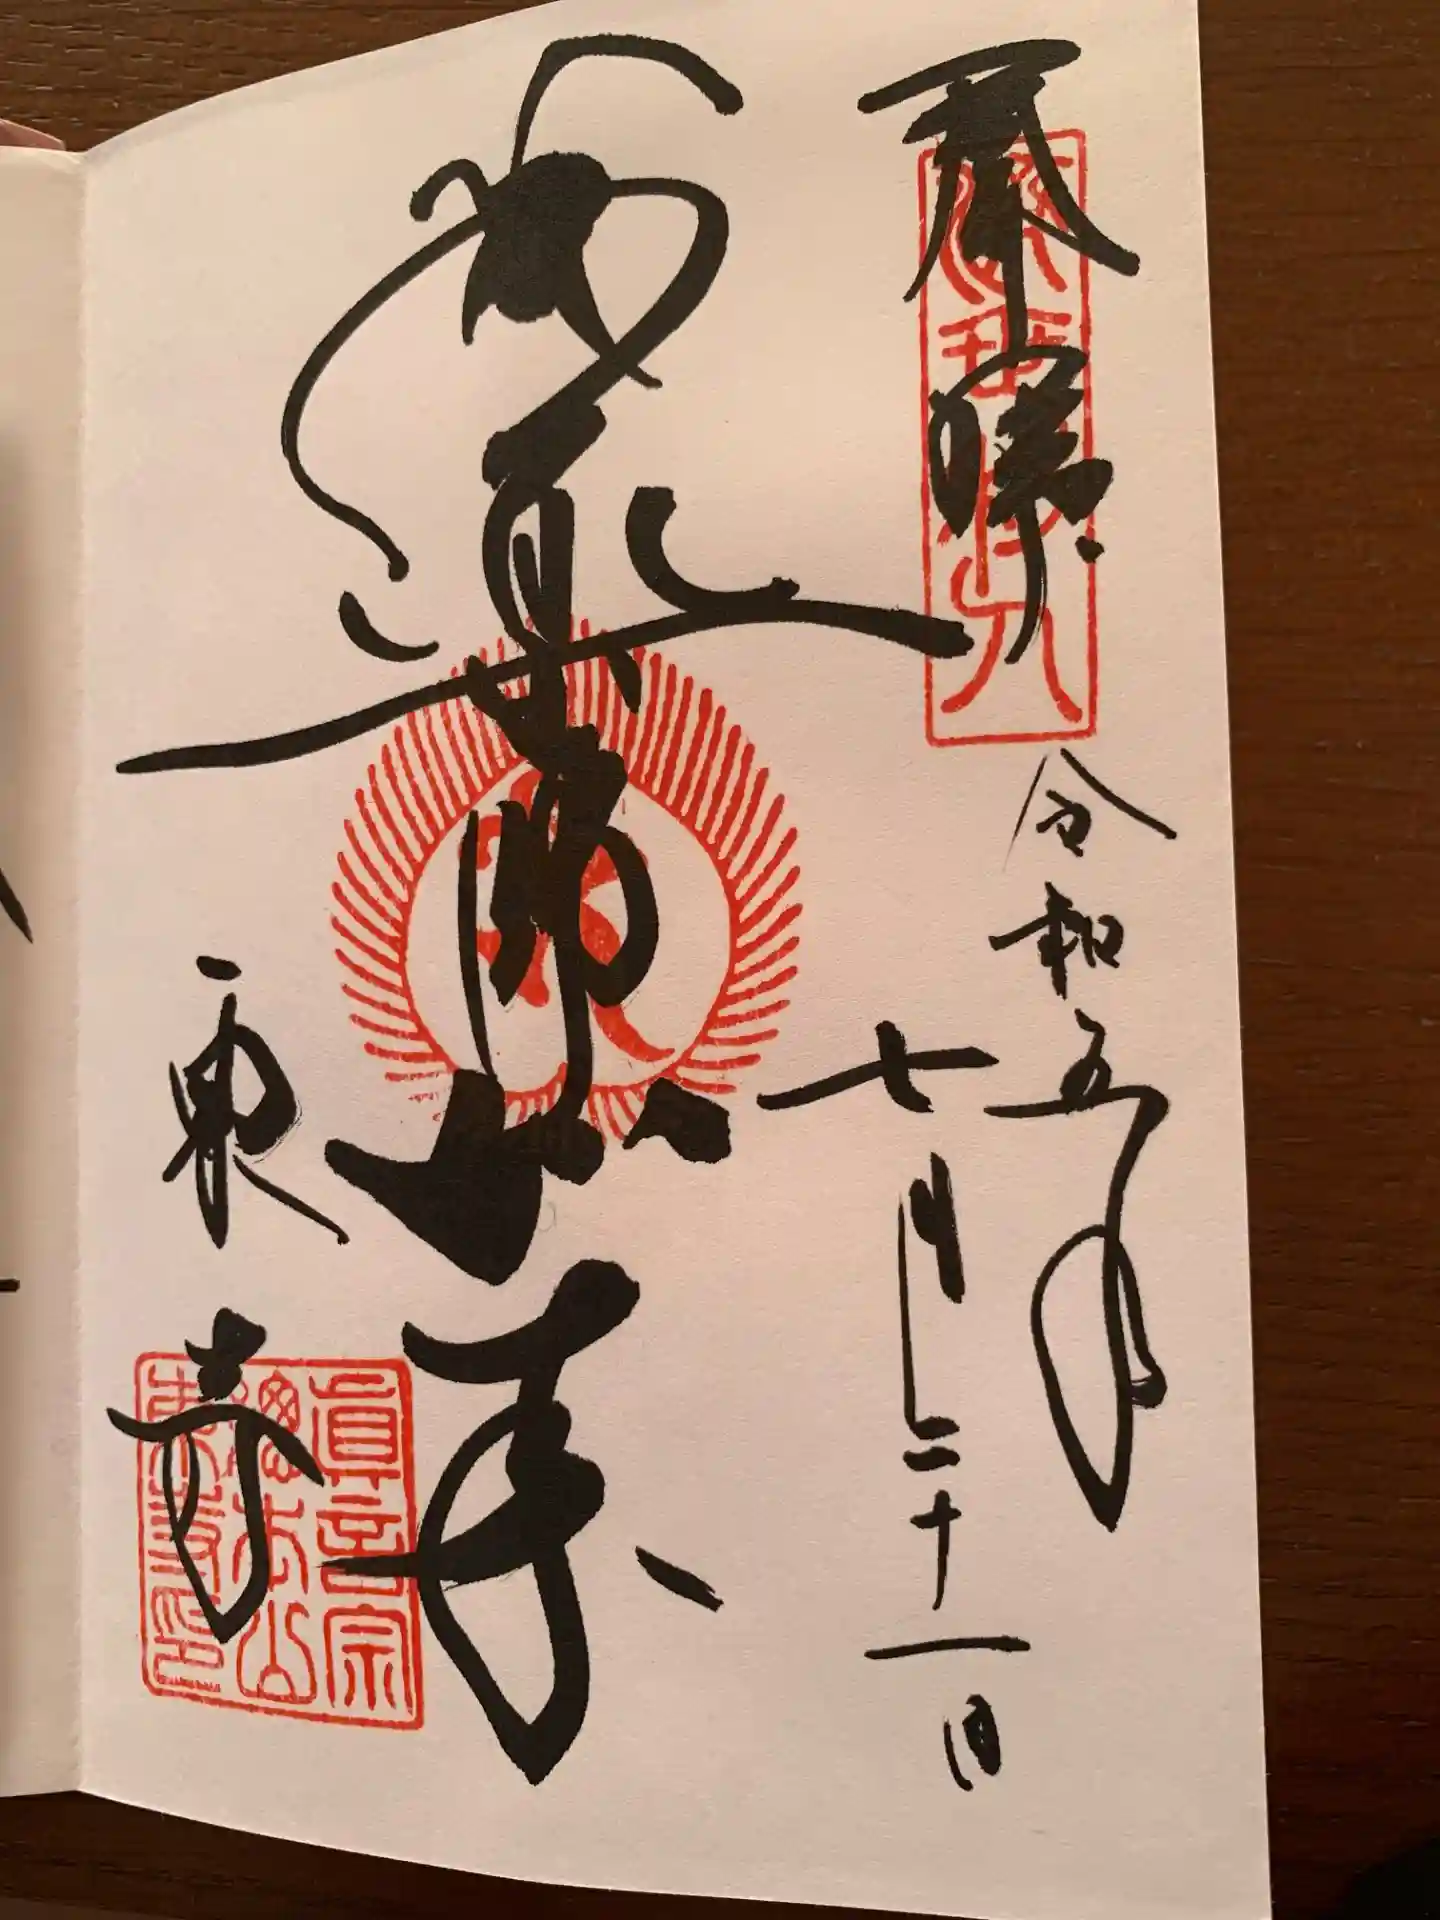 奉拝
令和五年
七月二十一日
薬師如来
東寺
眞言宗
總本山
東寺印